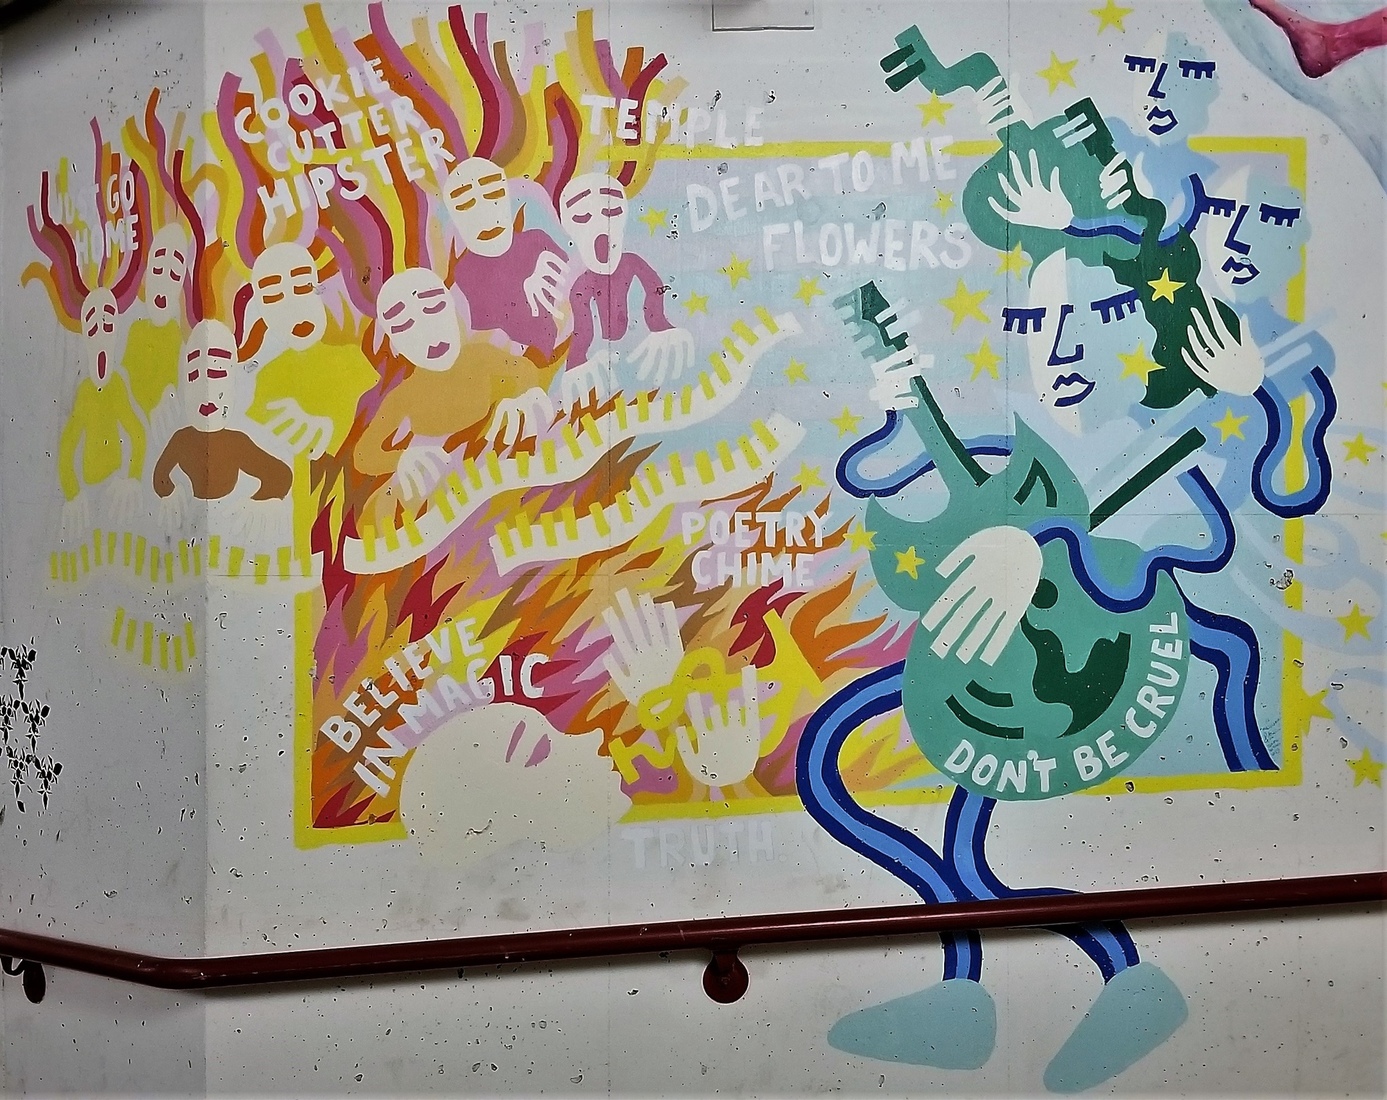 JUST GO
HOME
COOKIE
CUTTER
HIPSTER
TEMPLE
DEAR TO ME
FLOWERS
POETRY
CHIME
BELIEVE
IN MAGIC
DON'T BE CRUEL
TRUTH.